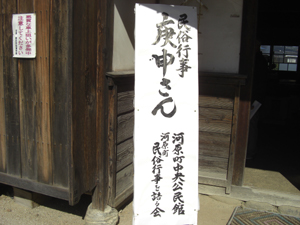 民俗行事
庚申さん
河原町中央公民館
河原町
民俗行事を語る会